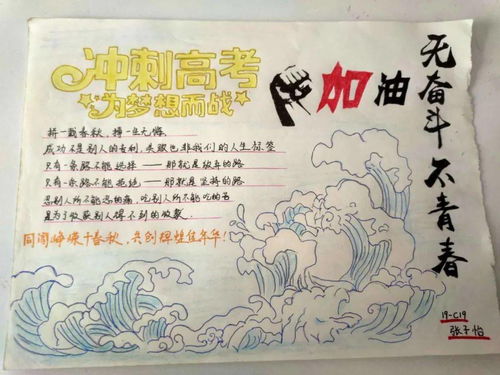 冲刺高考
为梦想而战
加油
无奋斗不青春
拼一载春秋，搏一生无悔
成功不是别人的专利，失败也非我们的人生标签
只有一条路不能选择——那就是放弃的路
只有一条路不能拒绝——那就是坚持的路
忍别人所不能忍的痛，吃别人所不能吃的苦
是为了收获别人得不到的收获
同阅峥嵘十春秋，共创辉煌佳年华！
19-C19
张子怡